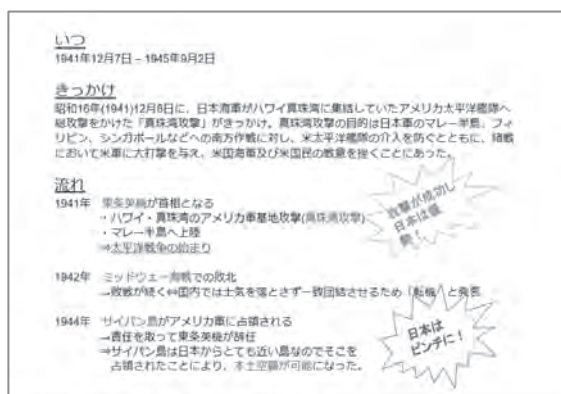 いつ
1941年12月7日 – 1945年9月2日
きっかけ
昭和16年(1941)12月8日に、日本海軍がハワイ真珠湾に集結していたアメリカ太平洋艦隊へ
総攻撃をかけた「真珠湾攻撃」がきっかけ。真珠湾攻撃の目的は日本軍のマレー半島、フィ
リピン、シンガポールなどへの南方作戦に対し、米太平洋艦隊の介入を防ぐとともに、緒戦
において米軍に大打撃を与え、米国海軍及び米国民の戦意を挫くことにあった。
流れ
1941年 東条英機が首相となる
・ハワイ・真珠湾のアメリカ軍基地攻撃(真珠湾攻撃)
・マレー半島へ上陸
⇒太平洋戦争の始まり
攻撃が成功し
日本は優
勢!
1942年 ミッドウェー海戦での敗北
→敗戦が続く⇔国内では士気を落とさず一致団結させるため「転機」と発表
1944年 サイパン島がアメリカ軍に占領される
→責任を取って東条英機が辞任
⇒サイパン島は日本からとても近い島なのでそこを
占領されたことにより、本土空襲が可能になった。
日本は
ピンチに!